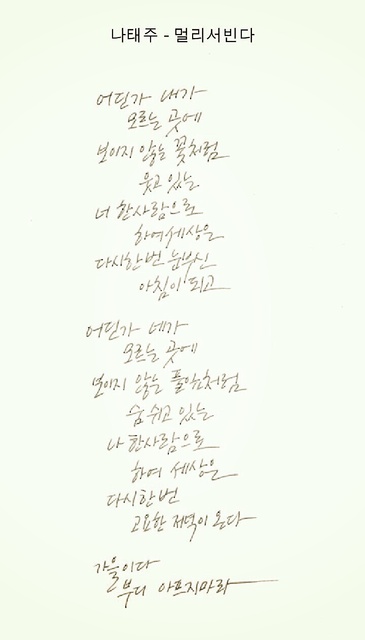 나태주 - 멀리서빈다
어딘가 내가
모르는 곳에
보이지 않는 꽃처럼
웃고 있는
너 한사람으로
하여 세상은
다시한번 눈부신
아침이 되고
어딘가 네가
모르는 곳에
보이지 않는 풀잎처럼
숨쉬고 있는
나 한사람으로
하여 세상은
다시한번
고요한 저녁이 온다
가을이다
부디 아프지마라